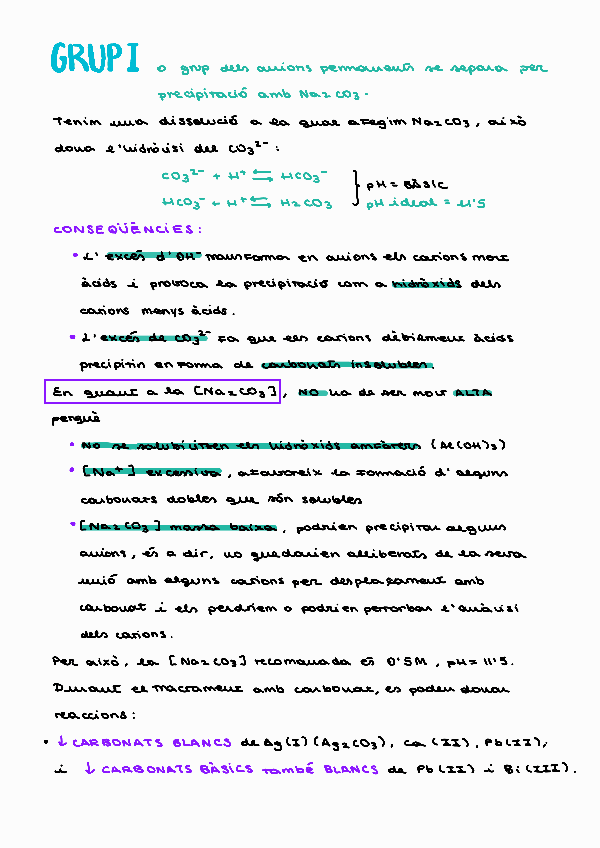 GRUP I o grup dels anions permanents se separa per
precipitació amb Na₂CO₃.
Tenim una dissolució a la qual afegim Na₂CO₃, això
dona l'hidròlisi del CO₃²⁻:
CO₃²⁻ + H⁺ ⇆ HCO₃⁻
HCO₃⁻ + H⁺ ⇆ H₂CO₃
pH = BÀSIC
pH ideal = 11'5
CONSEQÜÈNCIES:
• L'excés d'OH⁻ transforma en anions els cations molt
àcids i provoca la precipitació com a hidròxids dels
cations menys àcids.
• L'excés de CO₃²⁻ fa que els cations dèbilment àcids
precipitin en forma de carbonats insolubles.
En quant a la [Na₂CO₃], NO ha de ser molt ALTA
perquè
• No se solubilitzen els hidròxids amfòters (Al(OH)₃)
• [Na⁺] excessiva, afavoreix la formació d'alguns
carbonats dobles que són solubles
• [Na₂CO₃] massa baixa, podrien precipitar alguns
anions, és a dir, no quedarien alliberats de la seva
unió amb alguns cations per desplaçament amb
carbonat i els perdríem o podrien pertorbar l'anàlisi
dels cations.
Per això, la [Na₂CO₃] recomanada és 0'5M, pH = 11'5.
Durant el tractament amb carbonat, es poden donar
reaccions:
• ↓ CARBONATS BLANCS de Ag(I) (Ag₂CO₃), Ca(II), Pb(II),
i ↓ CARBONATS BÀSICS també BLANCS de Pb(II) i Bi(III).